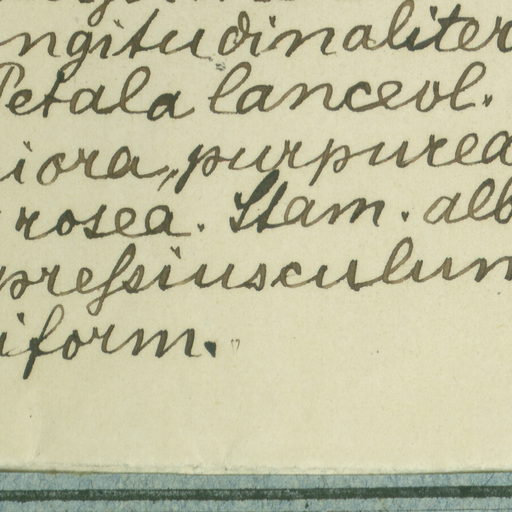 ngitudinaliter
Petala lanceol.
iora, purpurea
rosea. Stam. alb
presſiusculum
iform.